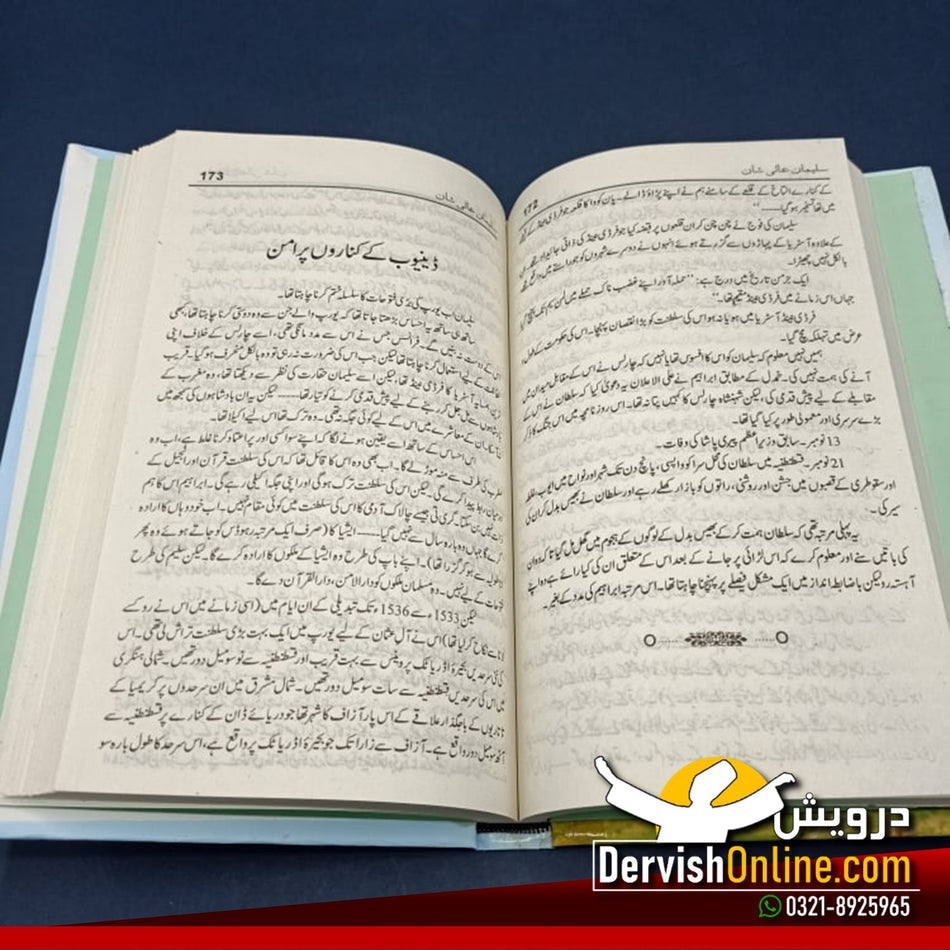 سلیمان عالی شان
172
کے کنارے التاغ کے قلعے کے سامنے ہم نے اپنے پڑاؤ ڈالے۔ یان کودا کا قلعہ جو فرڈی نینڈ کے قبضے
میں تھا تسخیر ہو گیا……''
سلیمان کی فوج نے چن چن کر ان قلعوں پر قبضہ کیا جو فرڈی نینڈ کی ذاتی جائیداد تھے۔ اس
کے علاوہ آسٹریا کے پہاڑوں سے گزرتے ہوئے انہوں نے دوسرے شہروں کو جو راستے میں واقع تھے
بالکل نہیں چھیڑا۔
ایک جرمن تاریخ میں درج ہے: ''حملہ آور اپنے غضب ناک حملے میں لنز ہم تک پہنچ گیا
جہاں اس زمانے میں فرڈی نینڈ مقیم تھا۔''
فرڈی نینڈ آسٹریا میں ہو یا نہ ہو اس کی سلطنت کو بڑا نقصان پہنچا۔ اس کی حکومت کے طول و
عرض میں تہلکہ مچ گیا۔
ہمیں نہیں معلوم کہ سلیمان کو اس کا افسوس تھا یا نہیں کہ چارلس نے اس کے مقابل میدان میں
آنے کی ہمت نہیں کی۔ حمدل کے مطابق ابراہیم نے علی الاعلان یہ دعویٰ کیا کہ سلطان نے اس کے
مقابلے کے لیے پیش قدمی کی، لیکن شہنشاہ چارلس کا کہیں پتا نہ تھا۔ اس روزنامچہ میں اس جنگ کا ذکر
بڑے سرسری اور معمولی طور پر کیا گیا تھا۔
13 نومبر۔ سابق وزیراعظم پیری پاشا کی وفات۔
21 نومبر۔ قسطنطنیہ میں سلطان کی محل سرا کو واپسی، پانچ دن تک شہر اور نواح میں ایوب، غلطہ
اور سقوطری کے قصبوں میں جشن اور روشنی، راتوں کو بازار کھلے رہے اور سلطان نے بھیس بدل کر ان کی
سیر کی۔
یہ پہلی مرتبہ تھی کہ سلطان ہمت کر کے بھیس بدل کے لوگوں کے ہجوم میں گھل مل گیا تا کہ وہ ان
کی باتیں سنے اور معلوم کرے کہ اس لڑائی پر جانے کے بعد اس کے متعلق ان کی کیا رائے ہے وہ اپنے
آہستہ رو لیکن باضابط انداز میں ایک مشکل فیصلے پر پہنچنا چاہتا تھا۔ اس مرتبہ ابراہیم کی مدد کے بغیر۔
173
سلیمان عالی شان
ڈینیوب کے کناروں پر امن
سلیمان اب یورپ کی بڑی فتوحات کا سلسلہ ختم کرنا چاہتا تھا۔
ساتھ ہی ساتھ یہ احساس بڑھتا جاتا تھا کہ یورپ والے جن سے وہ دوستی کرنا چاہتا تھا، کبھی
اس کے دوست نہ بنیں گے۔ فرانسس جس نے اس سے مدد مانگی تھی، اسے چارلس کے خلاف اپنی
حفاظت کے لیے استعمال کرنا چاہتا تھا لیکن جب اس کی ضرورت نہ رہی تو وہ بالکل منحرف ہو گیا۔ قریب
ترین ہمسایہ آسٹریا کا فرڈی نینڈ تھا، لیکن اسے سلیمان حقارت کی نظر سے دیکھتا تھا، وہ مغرب کے
بادشاہوں سے مل جل کر رہنے کے لیے پیش قدمی کرنے کو تیار تھا……… لیکن یہ ان بادشاہوں کی سمجھ میں
نہ آتا تھا کہ ان کے معاشرے میں اس کے لیے کوئی جگہ نہ تھی۔ وہ ترک تھا اس لیے اکیلا تھا۔
اس احساس کے ساتھ اسے یقین ہونے لگا کہ اپنے سوا کسی اور پر اعتماد کرنا غلط ہے، اب وہ
مغرب کی طرف سے منہ موڑ لے گا۔ اب بھی وہ اس کا قائل تھا کہ اس کی سلطنت قرآن اور انجیل کے
درمیان رابطہ پیدا کرے گی۔ لیکن اس کی سلطنت ترک ہو گی اور اپنی جگہ اکیلی رہے گی۔ ابراہیم اس کا ہم
ذات نہیں بن سکتا۔ گری تی جیسے چالاک آدمی کا اس کی سلطنت میں کوئی مقام نہیں۔ اب خود وہاں کا ارادہ
کرے گا جہاں وہ بارہ سال سے نہیں گیا…… ایشیا کا (صرف ایک مرتبہ رہوڈس کو جاتے ہوئے وہ پھر
اناطولیہ سے ہو کر گزرا تھا)۔ اپنے باپ کی طرح وہ ایشیا کے ملکوں کا ارادہ کرے گا۔ لیکن سلیم کی طرح
فتوحات کے لیے نہیں۔ وہ مسلمان ملکوں کو دارالامن، دارالقرآن بنا دے گا۔
لیکن 1533ء سے 1536ء تک تبدیلی کے ان ایام میں (اسی زمانے میں اس نے روکسے
لانا سے نکاح کر لیا تھا) اس نے آل عثمان کے لیے یورپ میں ایک بہت بڑی سلطنت تراش لی تھی۔ اس
کی نئی سرحدیں بحیرۂ اڈریاٹک پر وینس سے بہت قریب اور قسطنطنیہ سے نو سو میل دور تھیں۔ شمالی ہنگری
میں اس کی سرحدیں قسطنطنیہ سے سات سو میل دور تھیں۔ شمال مشرق میں ان سرحدوں پر کریمیا کے
تاتاریوں کے باجگذار علاقے کے اس پار آزاف کا شہر تھا جو دریائے ڈان کے کنارے پر قسطنطنیہ سے
آٹھ سو میل دور واقع ہے۔ آزاف سے زارا تک جو بحیرۂ اڈریاٹک پر واقع ہے، اس سرحد کا طول بارہ سو
درویش
DervishOnline.com
0321-8925965